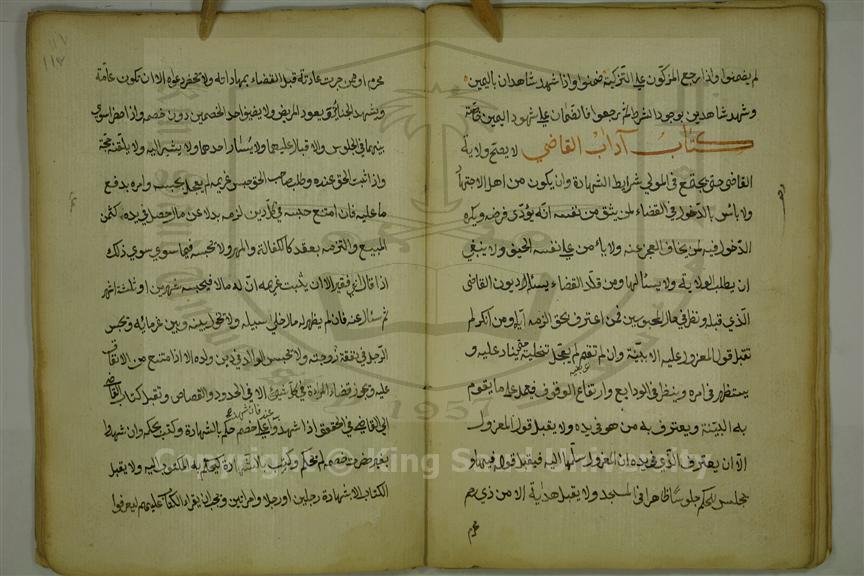 لم يضمنوا واذا رجع المزكون عن التزكية ضمنوا واذا شهد شاهدان باليمين
وشهد شاهدين بوجود الشرط ثم رجعوا فالضمان على شهود اليمين خاصة
كتاب آداب القاضي لا يصح ولاية
القاضى حتى يجتمع فى المولى شرايط الشهادة وان يكون من اهل الاجتهاد
ولا باس بالدخول فى القضاء لمن يثق من نفسه انه يؤدى فرضه ويكره
الدخول فيه لمن يخاف العجز عنه ولا يأمن على نفسه الحيف ولا ينبغي
ان يطلب الولاية ولا يسئالها ومن قلد القضاء يسلم اليه ديون القاضى
الذي قبله ونظر في حال المحبوسين فمن اعترف بحق الزمه اياه ومن انكر لم
تقبل قول المعزول عليه الا ببينة وان لم تقم لم يعجل تخليته حتى ينادى عليه و
يستظهر فى امره وينظر في الودايع وارتفاع الوقوف فيعمل على ما يقوم
به البينة ويعترف به من هو فى يده ولا يقبل قول المعزول
الا ان يعترف الذي فى يده ان المعزول سلمها اليه فيقبل قوله فيها و
يجلس للحكم جلوسا ظاهرا فى المسجد ولا يقبل هداية الا من ذي رحم
محرم
محرم او ممن جرت عادته قبل القضاء بمهاداته ولا تحضر دعوة الا ان تكون عامة
ويشهد الجنائز ويعود المريض ولا يضيف احد الخصمين دون خصمه واذا حضرا سوى
بينهما في الجلوس والاقبال عليهما ولا يسار احدهما ولا يشير اليه ولا يلقنه حجة
واذا ثبت الحق عنده وطلب صاحب الحق حبس غريمه لم يعجل بحبسه وامره بدفع
ما عليه فان امتنع حبسه في كل دين لزمه بدلا عن مال حصل في يده كثمن
المبيع والتزمه بعقد كالكفالة والمهر ولا تحبسه فيما سوى ذلك
اذا قال انى فقير الا ان يثبت غريمه ان له مالا فيحبسه شهرين او ثلثة اشهر
ثم سئال عنه فان لم يظهر له مال خلى سبيله ولا تحول بينه وبين غرمائه وتحبس
الرجل في نفقة زوجته ولا تحبس الوالد في دين ولده الا اذا امتنع من الانفاق
عليه وتجوز قضاء المراءة في كل شيئ الا فى الحدود والقصاص وتقبل كتاب القاضى
الى القاضى في الحقوق اذا شهد به عنده فان شهدوا على خصم حكم بالشهادة وكتب بحكمه وان شهدوا
بغير حضرت خصم لم يحكم وكتب بالشهادة ليحكم بها المكتوب اليه ولا يقبل
الكتاب الا بشهادة رجلين او رجل وامراتين ويجب ان يقراء الكتاب عليهم ليعرفوا
١١٣
Copyright © King Saud University
1957